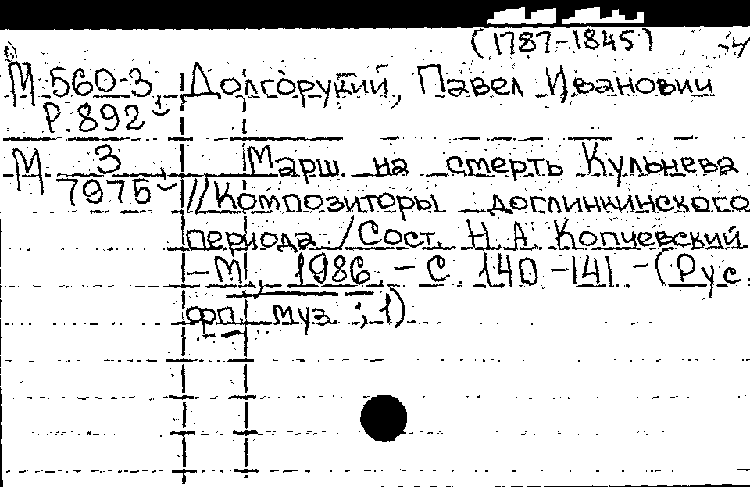 (1787-1845)
М 560-3 Долгорукий, Павел Иванович
Р.892
М 3 Марш на смерть Кульнева
7975 //Композиторы доглинкинского
периода /Сост. Н.А. Копчевский
-М., 1986. - С. 140-141. - (Рус.
фп. муз.; 1)